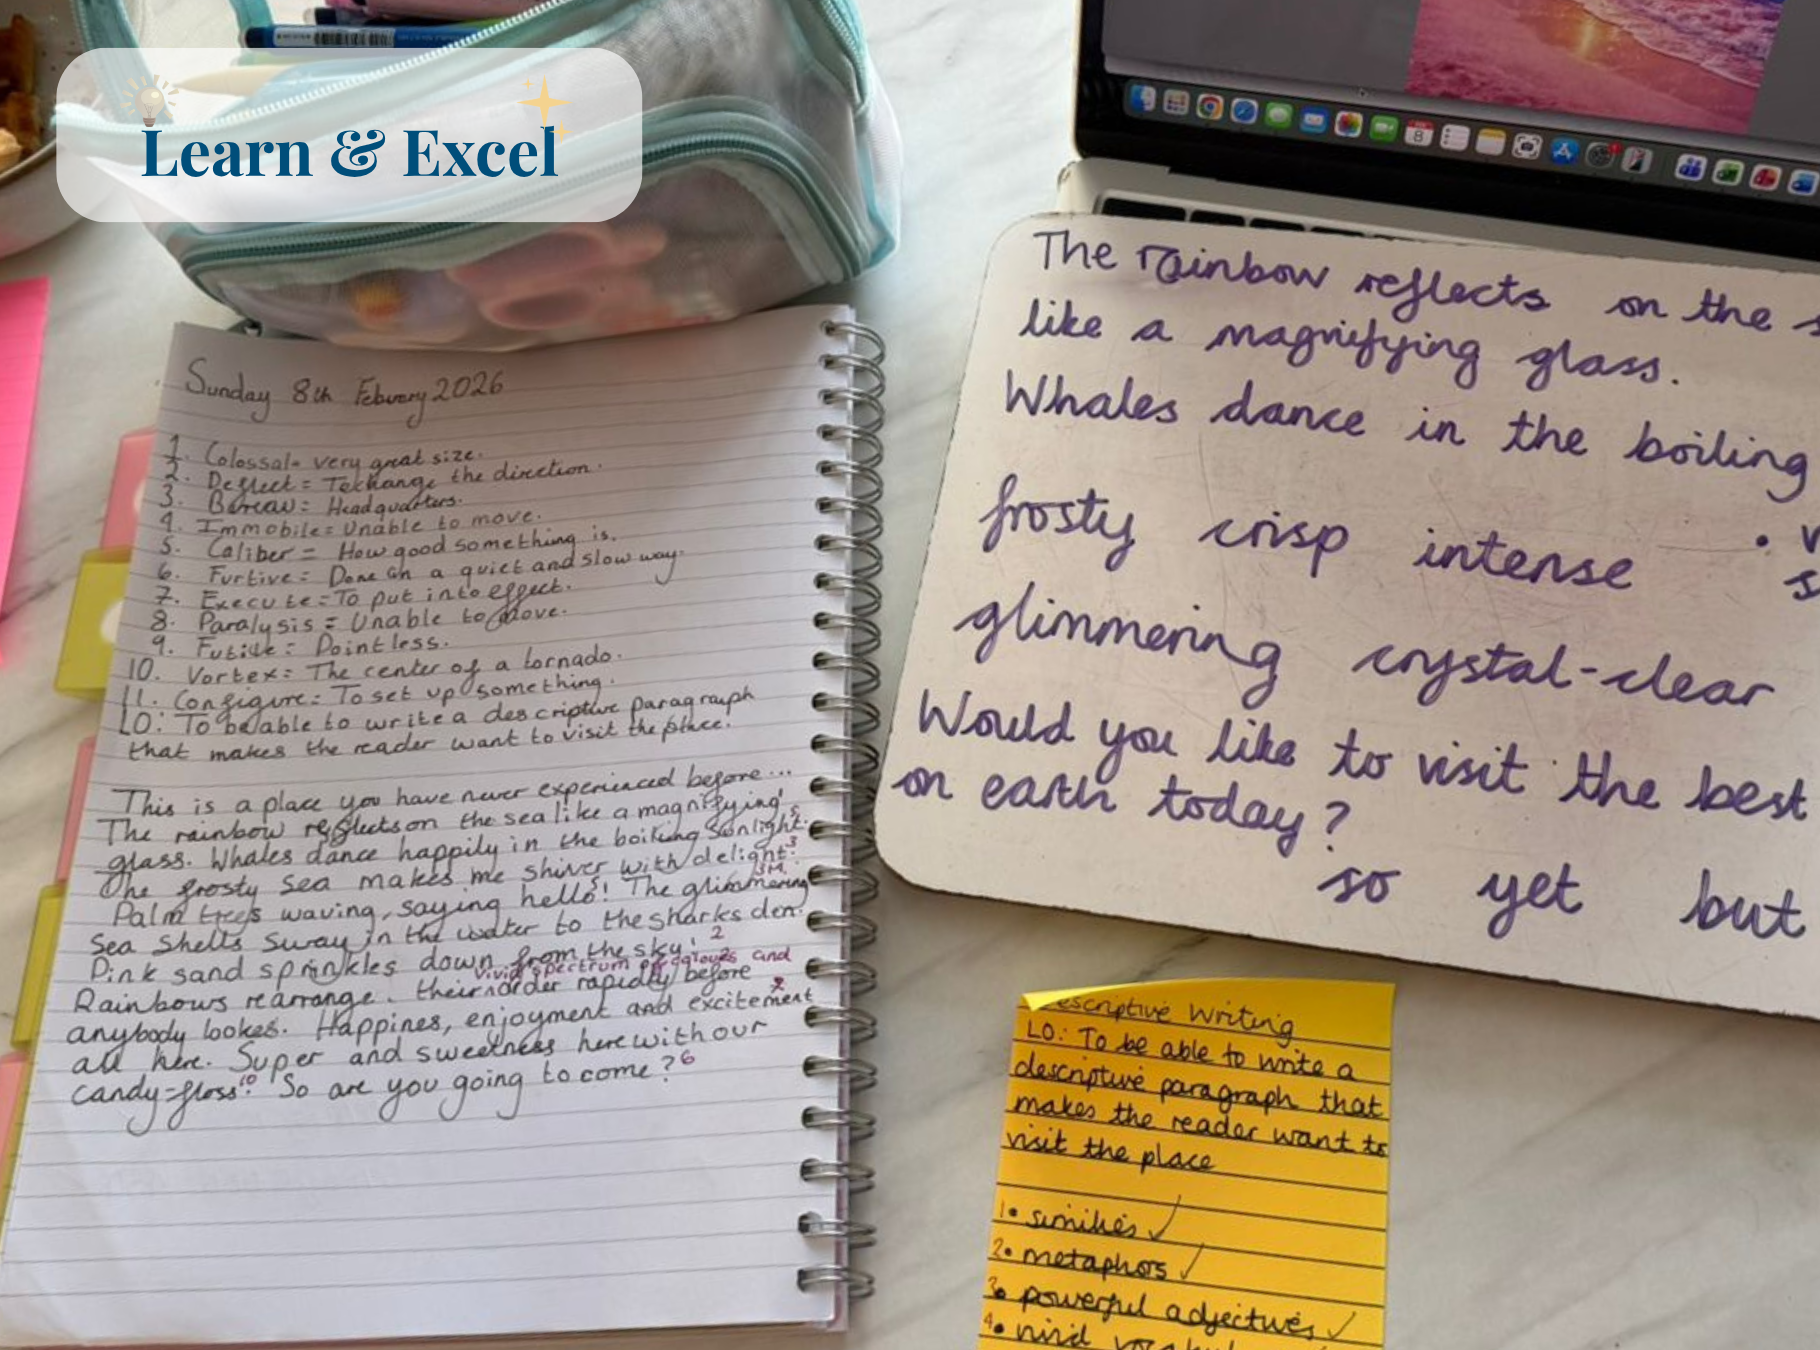 Learn & Excel
Sunday 8th Febuery 2026
1. Colossal= very great size.
2. Deflect = To change the direction.
3. Bureau = Headquarters.
4. Immobile = Unable to move.
5. Caliber = How good something is.
6. Furtive = Done in a quiet and slow way.
7. Execute = To put into effect.
8. Paralysis = Unable to move.
9. Futile = Pointless.
10. Vortex = The center of a tornado.
11. Configure = To set up something.
LO: To be able to write a descriptive paragraph
that makes the reader want to visit the place.
This is a place you have never experienced before...
The rainbow reflects on the sea like a magnifying
glass. Whales dance happily in the boiling sunlight.
The frosty sea makes me shiver with delight.
Palm trees waving, saying hello! The glimmering
sea shells sway in the water to the sharks den.
Pink sand sprinkles down from the sky! 2
vivid spectrum of colours and
Rainbows rearrange their order rapidly before
anybody lookes. Happines, enjoyment and excitement
all here. Super and sweetness here with our
candy-floss! 10 So are you going to come? 6
The rainbow reflects on the
like a magnifying glass.
Whales dance in the boiling
frosty crisp intense
glimmering crystal-clear
Would you like to visit the best
on earth today?
so yet but
escriptive Writing
LO: To be able to write a
descriptive paragraph that
makes the reader want to
visit the place
1. similies ✓
2. metaphors ✓
3. powerful adjectives ✓
4. vivid